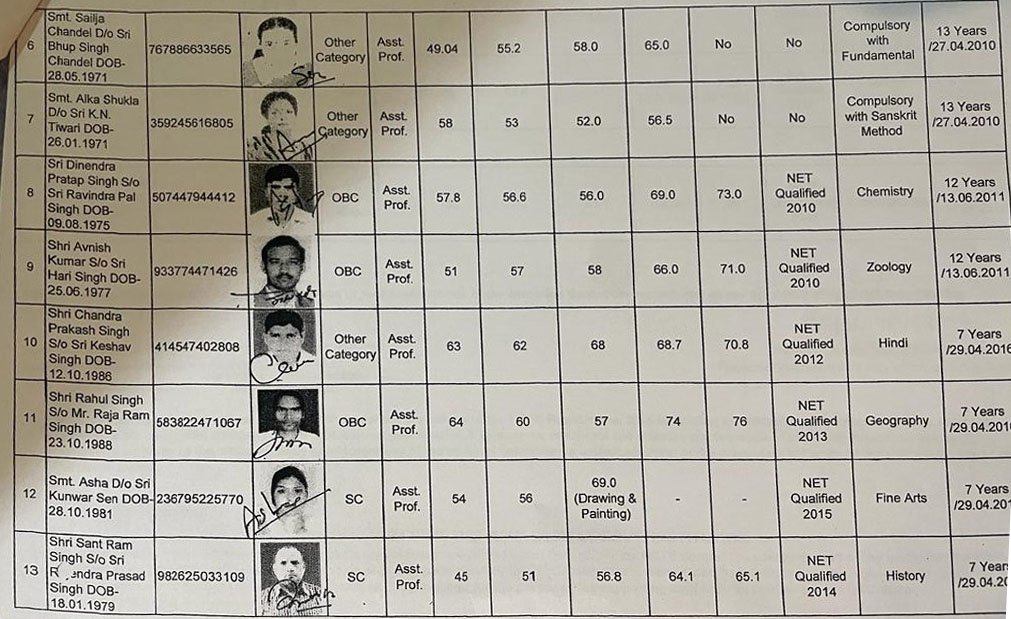 6
Smt. Sailja
Chandel D/o Sri
Bhup Singh
Chandel DOB-
28.05.1971
767886633565
Other
Category
Asst.
Prof.
49.04
55.2
58.0
65.0
No
No
Compulsory
with
Fundamental
13 Years
/27.04.2010
7
Smt. Alka Shukla
D/o Sri K.N.
Tiwari DOB-
26.01.1971
359245616805
Other
Category
Asst.
Prof.
58
53
52.0
56.5
No
No
Compulsory
with Sanskrit
Method
13 Years
/27.04.2010
8
Sri Dinendra
Pratap Singh S/o
Sri Ravindra Pal
Singh DOB-
09.08.1975
507447944412
OBC
Asst.
Prof.
57.8
56.6
56.0
69.0
73.0
NET
Qualified
2010
Chemistry
12 Years
/13.06.2011
9
Shri Avnish
Kumar S/o Sri
Hari Singh DOB-
25.06.1977
933774471426
OBC
Asst.
Prof.
51
57
58
66.0
71.0
NET
Qualified
2010
Zoology
12 Years
/13.06.2011
10
Shri Chandra
Prakash Singh
S/o Sri Keshav
Singh DOB-
12.10.1986
414547402808
Other
Category
Asst.
Prof.
63
62
68
68.7
70.8
NET
Qualified
2012
Hindi
7 Years
/29.04.2016
11
Shri Rahul Singh
S/o Mr. Raja Ram
Singh DOB-
23.10.1988
583822471067
OBC
Asst.
Prof.
64
60
57
74
76
NET
Qualified
2013
Geography
7 Years
/29.04.201
12
Smt. Asha D/o Sri
Kunwar Sen DOB-
28.10.1981
236795225770
SC
Asst.
Prof.
54
56
69.0
(Drawing &
Painting)
-
-
NET
Qualified
2015
Fine Arts
7 Years
/29.04.201
13
Shri Sant Ram
Singh S/o Sri
Prasad
Singh DOB-
18.01.1979
982625033109
SC
Asst.
Prof.
45
51
56.8
64.1
65.1
NET
Qualified
2014
History
7 Year
/29.04.20